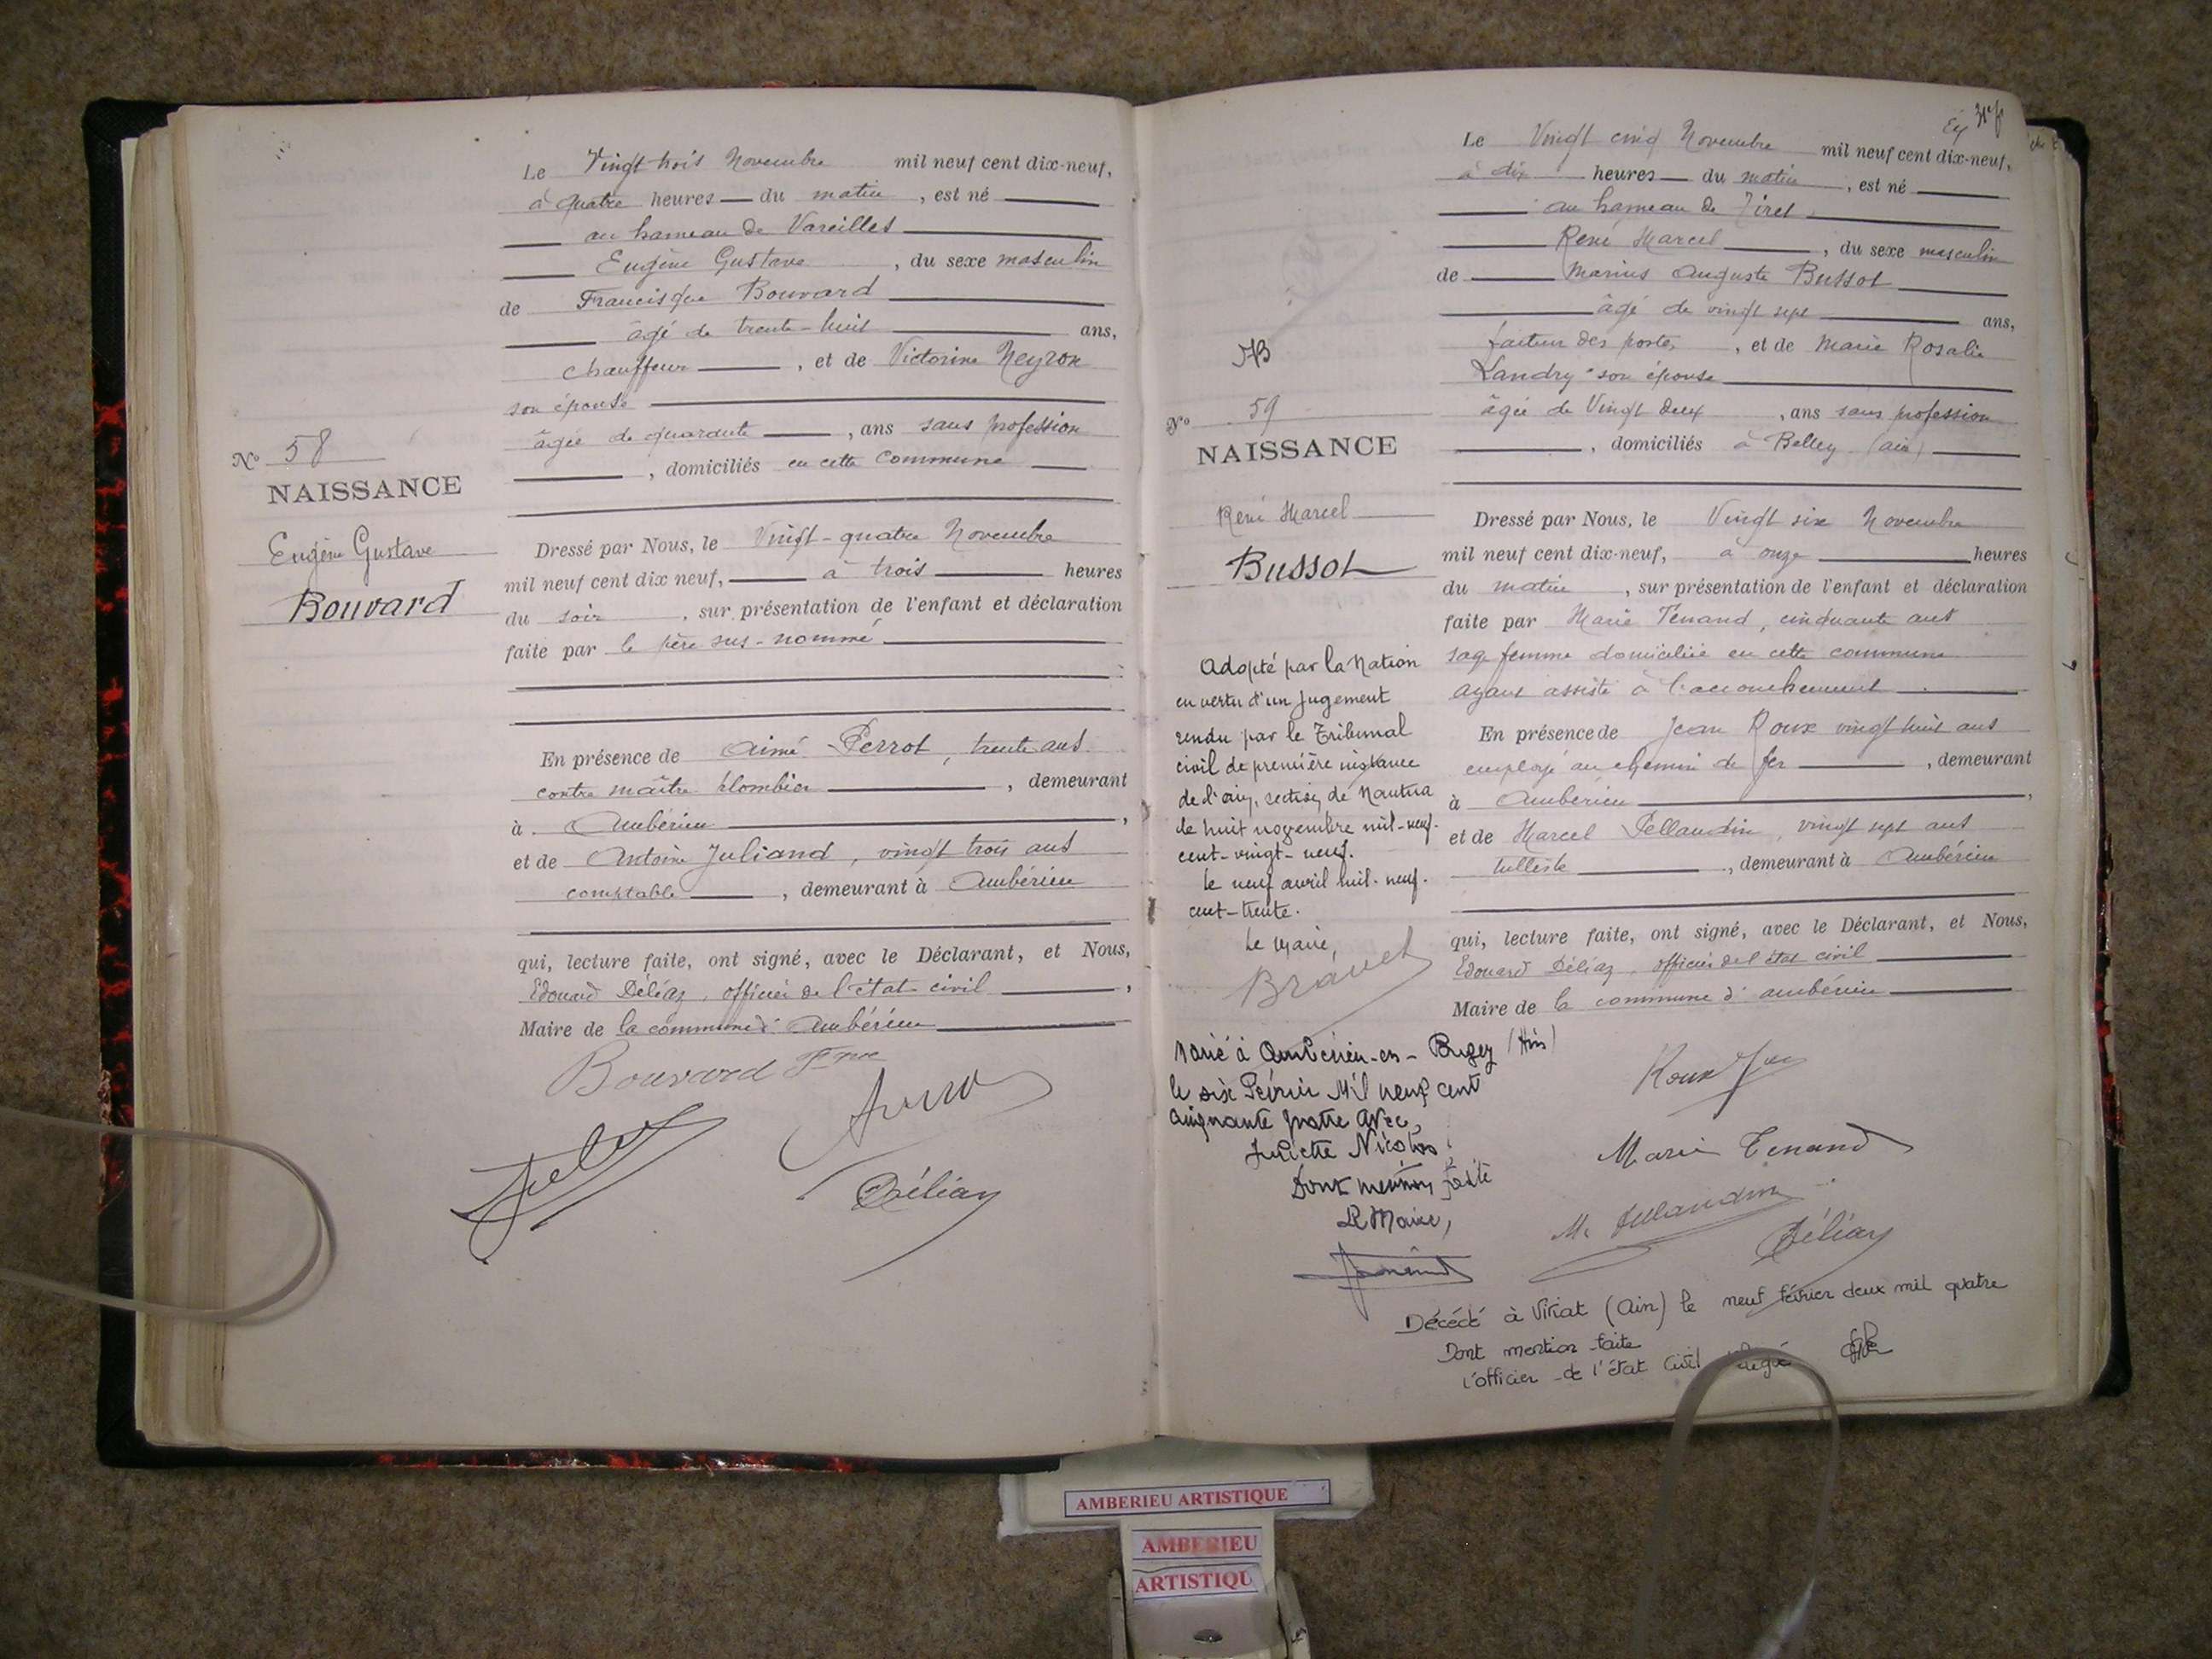 Le Vingt trois Novembre mil neuf cent dix-neuf,
à quatre heures du matin, est né
au hameau de Vareilles
Eugène Gustave, du sexe masculin
de Francisque Bouvard
âgé de trente-huit ans,
chauffeur, et de Victorine Neyron
son épouse
âgée de quarante, ans sans profession
, domiciliés en cette commune
N° 58
NAISSANCE
Eugène Gustave
Bouvard
Dressé par Nous, le Vingt-quatre Novembre
mil neuf cent dix neuf, à trois heures
du soir, sur présentation de l'enfant et déclaration
faite par le père sus-nommé
En présence de Aimé Perrot, trente ans
contre maître plombier, demeurant
à Ambérieu,
et de Antoine Juliand, vingt trois ans
comptable, demeurant à Ambérieu
qui, lecture faite, ont signé, avec le Déclarant, et Nous,
Edouard Déliaz, officier de l'état civil,
Maire de la commune d'Ambérieu
Bouvard
Déliaz
Le Vingt cinq Novembre mil neuf cent dix-neuf,
à dix heures du matin, est né
au hameau de Tiret,
René Marcel, du sexe masculin
de Marius Auguste Bussot
âgé de vingt sept ans,
facteur des postes, et de Marie Rosalie
Landry son épouse
âgée de Vingt deux, ans sans profession
, domiciliés à Belley (ain)
N° 59
NAISSANCE
René Marcel
Bussot
Dressé par Nous, le Vingt six Novembre
mil neuf cent dix-neuf, à onze heures
du matin, sur présentation de l'enfant et déclaration
faite par Marie Tenand, cinquante ans
sage femme domiciliée en cette commune
ayant assisté à l'accouchement.
En présence de Jean Roux vingt huit ans
employé au chemin de fer, demeurant
à Ambérieu,
et de Marcel Pellaudin, vingt sept ans
tulliste, demeurant à Ambérieu
qui, lecture faite, ont signé, avec le Déclarant, et Nous,
Edouard Déliaz, officier de l'état civil
Maire de la commune d'ambérieu
Adopté par la Nation
en vertu d'un jugement
rendu par le Tribunal
civil de première instance
de l'ain, section de Nantua
le huit novembre mil-neuf-
cent-vingt-neuf.
Le neuf avril mil-neuf-
cent-trente.
Le Maire,
Bravet
Marié à Ambérieu-en-Bugey (Ain)
le six Février Mil neuf cent
cinquante quatre avec,
Juliette Nicolas
Dont mention faite
Le Maire,
Roux
Marie Tenand
Déliaz
Décédé à Viriat (Ain) le neuf février deux mil quatre
Dont mention faite
L'officier de l'état civil délégué
AMBERIEU ARTISTIQUE
AMBERIEU
ARTISTIQU